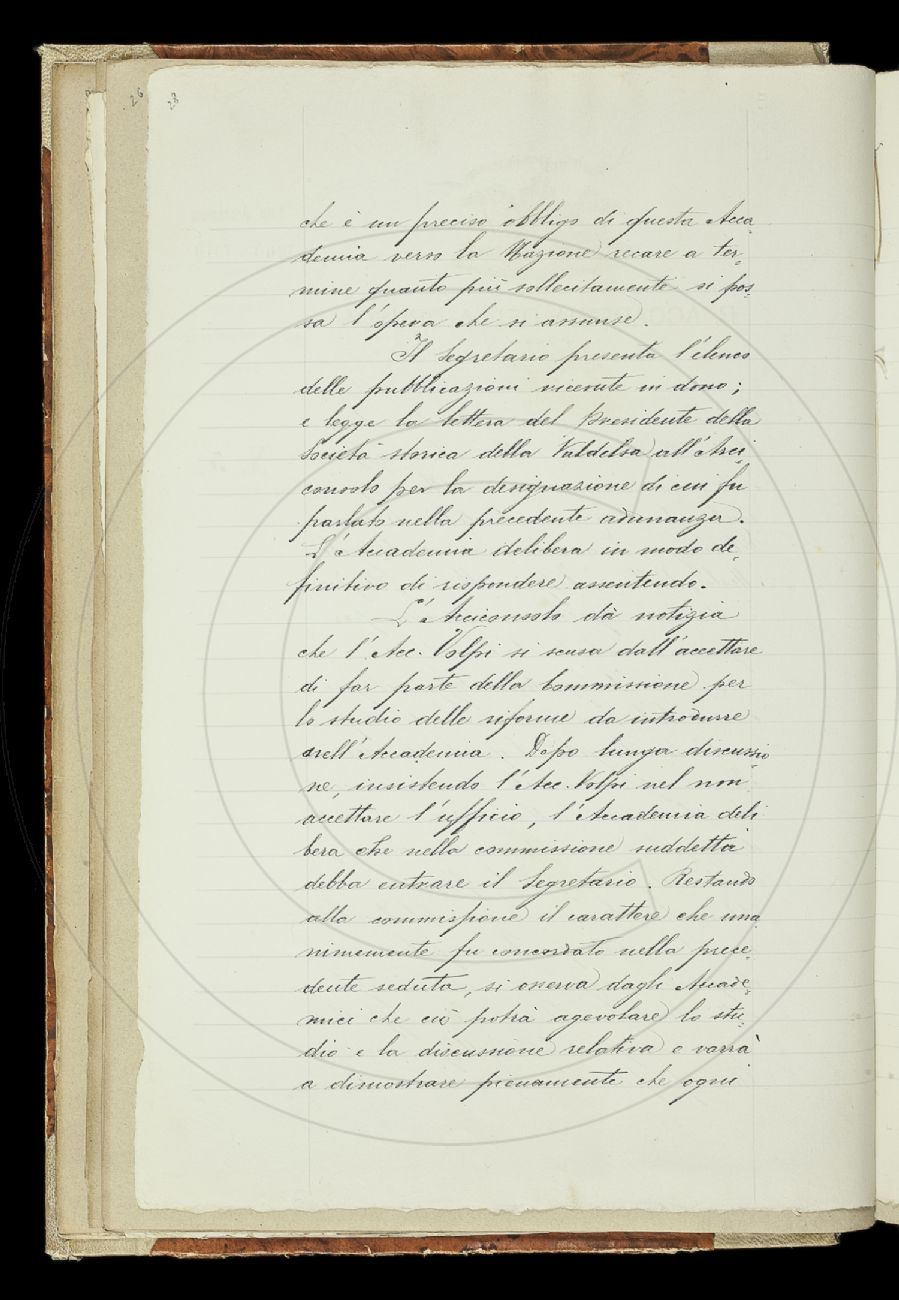 26 28
che è un preciso obbligo di questa Acca-
demia verso la Nazione recare a ter-
mine quanto più sollecitamente si pos-
sa l'opera che si assunse.
Il Segretario presenta l'elenco
delle pubblicazioni ricevute in dono;
e legge la lettera del Presidente della
Società storica della Valdelsa all'Arci-
consolo per la designazione di cui fu
parlato nella precedente adunanza.
L'Accademia delibera in modo de-
finitivo di rispondere assentendo.
L'Arciconsolo dà notizia
che l'Acc. Volpi si scusa dall'accettare
di far parte della Commissione per
lo studio delle riforme da introdurre
nell'Accademia. Dopo lunga discussio-
ne, insistendo l'Acc. Volpi nel non
accettare l'ufficio, l'Accademia deli
bera che nella commissione suddetta
debba entrare il Segretario. Restando
alla commissione il carattere che una-
nimemente fu concordato nella prece-
dente seduta, si osserva dagli Accade-
mici che ciò potrà agevolare lo stu-
dio e la discussione relativa e varrà
a dimostrare pienamente che ogni